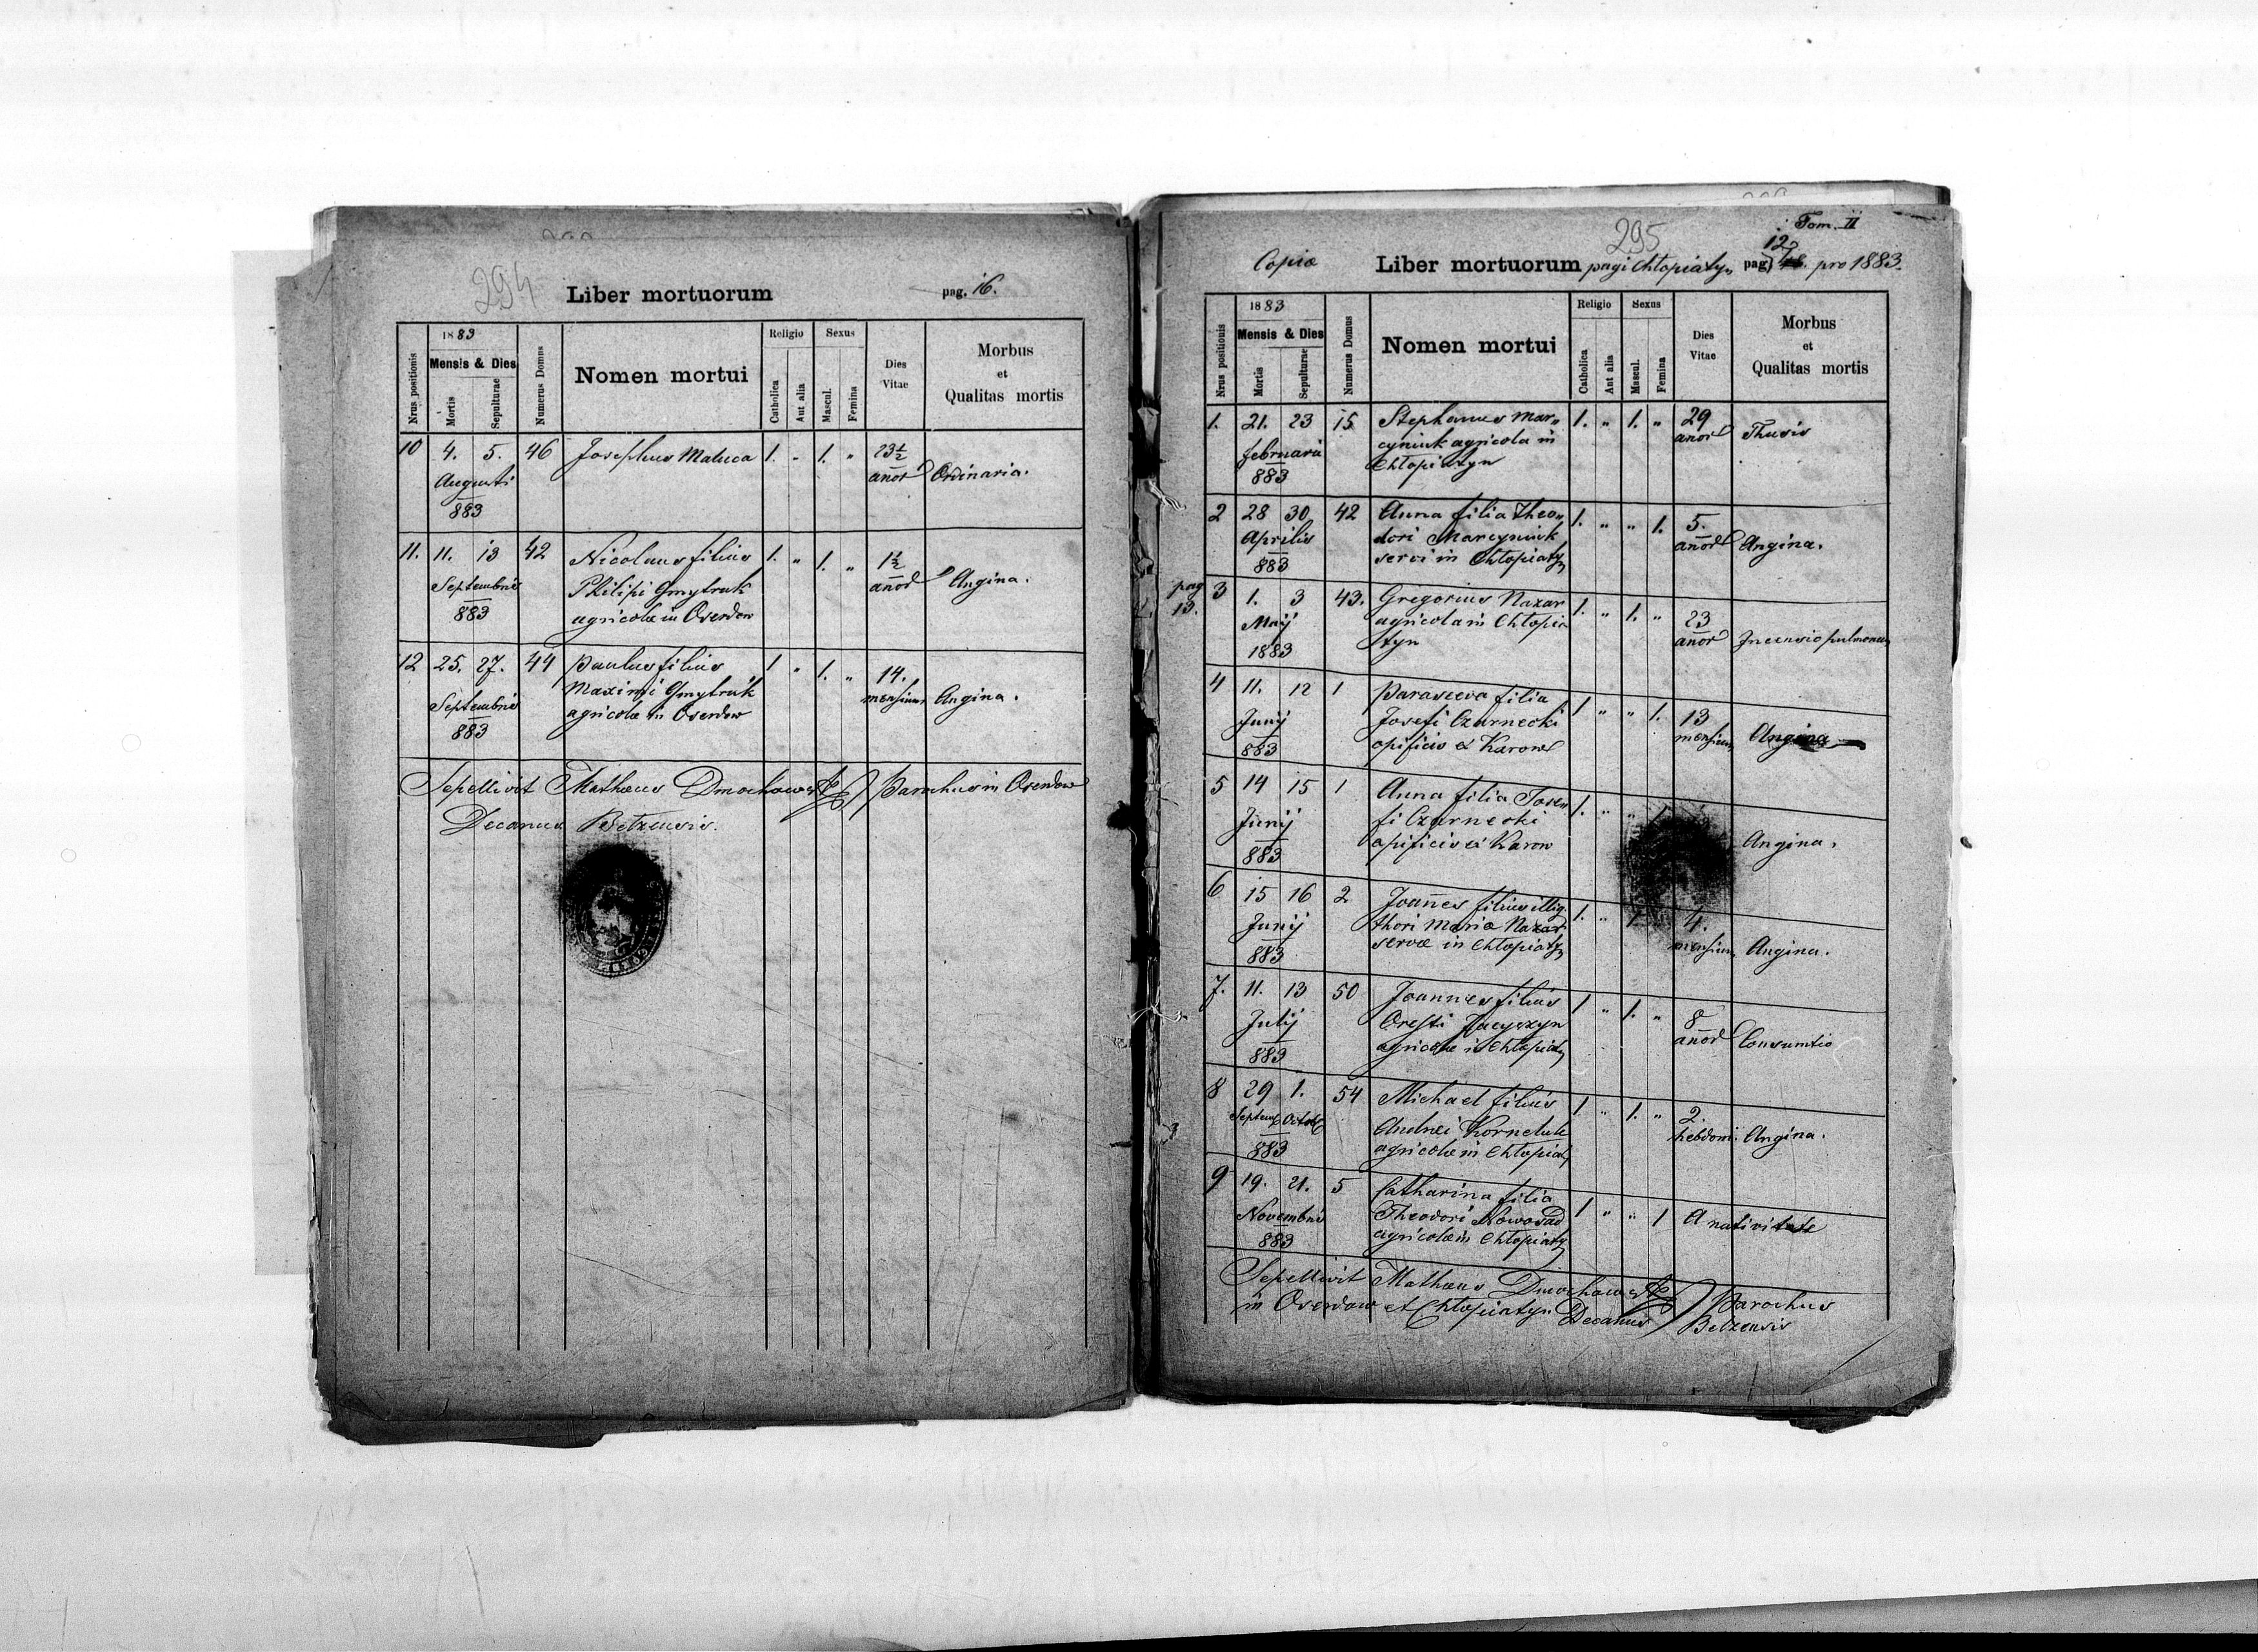 294
Liber mortuorum pag. 16.
Nrus positionis
1883
Mensis & Dies
Mortis
Sepulturae
Numerus Domus
Nomen mortui
Religio
Catholica
Aut alia
Sexus
Mascul.
Femina
Dies
Vitae
Morbus
et
Qualitas mortis
10 4. 5. 46 Josephus Maluca 1. „ 1. „ 23½
Augusti anor Ordinaria.
883
11. 11. 13 42 Nicolaus filius 1. „ 1. „ 1½
Septembris Philipi Gmytruk anor Angina.
883 agricolæ in Oserdow
12 25. 27. 44 Paulus filius 1 „ 1. „ 14.
Septembris Maximi Gmytruk mensium Angina.
883 agricolæ in Oserdow
Sepellivit Mathæus Dmochowski Parochus in Oserdow
Decanus Belzensis.
295
Tom. II
12
Copia Liber mortuorum pagi Chłopiatyn pag. pro 1883.
Nrus positionis
1883
Mensis & Dies
Mortis
Sepulturae
Numerus Domus
Nomen mortui
Religio
Catholica
Aut alia
Sexus
Mascul.
Femina
Dies
Vitae
Morbus
et
Qualitas mortis
1. 21. 23 15 Stephanus Mar„ 1. „ 1. „ 29
februarii cyniuk agricola in anor Thusis
883 Chłopiatyn
2 28 30 42 Anna filia Theo„ 1. „ „ 1. 5.
Aprilis dori Marcyniuk anor Angina.
883 servi in Chłopiatyn
pag
13.
3 1. 3 43. Gregorius Nazar 1. „ 1. „ 23
Maij agricola in Chłopia anor Incensio pulmonum
1883 tyn
4 11. 12 1 Parasceva filia 1 „ „ 1. 13
Junij Josefi Czarnecki mensium Angina
883 opificis ex Karow
5 14 15 1 Anna filia Jose„ 1. „ „
Junij fi Czarnecki Angina.
883 opificis ex Karow
6 15 16 2 Joannes filius illig. 1. „ 1. 4.
Junij thori Mariæ Nazar mensium Angina.
883 servæ in Chłopiatyn
7. 11. 13 50 Joannes filius 1 „ 1. „ 8
Julij Oresti Jacyszyn anor Consumtio
883 agricolæ in Chłopiatyn
8 29 1. 54 Michael filius 1 „ 1. „ 2.
Septem Octob Andrei Korneluk hebdom. Angina.
883 agricolæ in Chłopiatyn
9 19. 21. 5 Catharina filia 1 „ „ 1 A nativitate
Novembris Theodori Nowosad
883 agricolæ in Chłopiatyn
Sepellivit Mathæus Dmochowski Parochus
in Oserdow et Chłopiatyn Decanus Belzensis